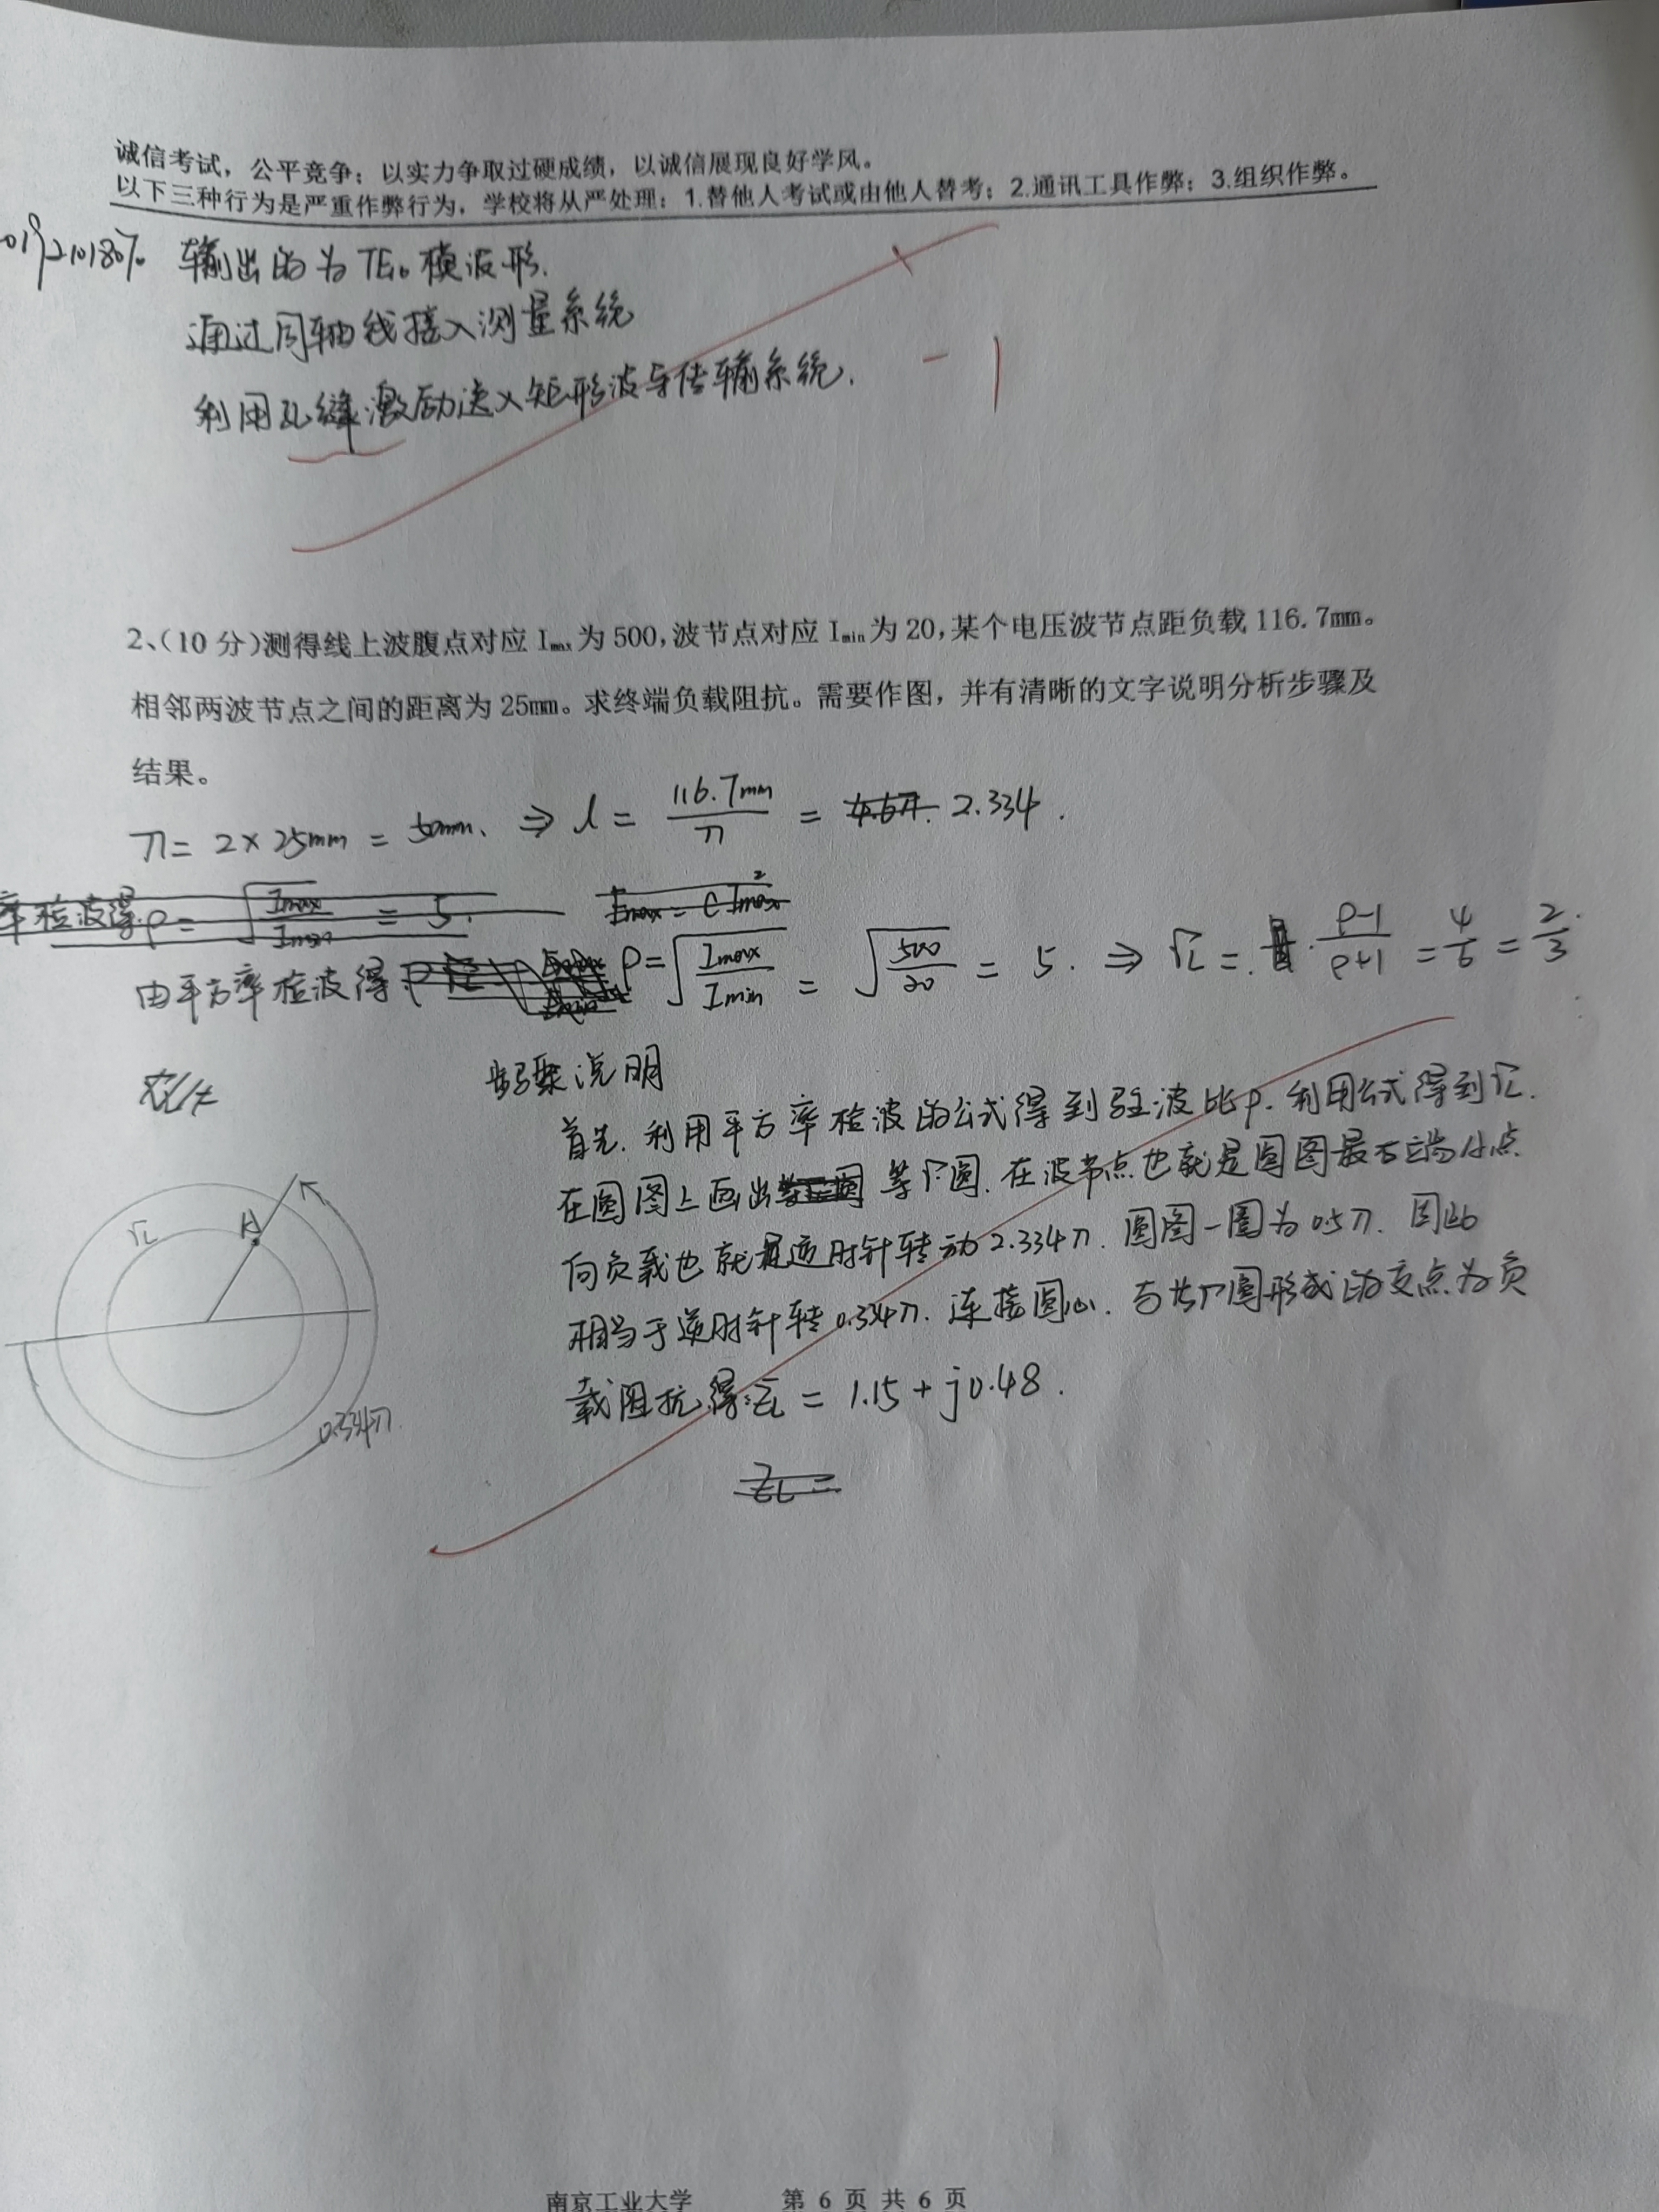 诚信考试，公平竞争；以实力争取过硬成绩，以诚信展现良好学风。
以下三种行为是严重作弊行为，学校将从严处理：1.替他人考试或由他人替考；2.通讯工具作弊；3.组织作弊。
输出的为TE₁₀模波形.
通过同轴线接入测量系统
利用孔缝激励送入矩形波导传输系统.
-1
2、（10 分）测得线上波腹点对应 Imax 为 500，波节点对应 Imin 为 20，某个电压波节点距负载 116.7mm。
相邻两波节点之间的距离为 25mm。求终端负载阻抗。需要作图，并有清晰的文字说明分析步骤及
结果。
λ = 2×25mm = 50mm. ⇒ l = 116.7mm/λ = 2.334.
率检波得 ρ = √(Imax/Imin) = 5. Emax = C I²max
由平方率检波得 ρ = √(Imax/Imin) = √(500/20) = 5. ⇒ ΓL = (ρ-1)/(ρ+1) = 4/6 = 2/3.
步骤说明
首先.利用平方率检波的公式得到驻波比ρ.利用公式得到ΓL.
在圆图上画出 等Γ圆.在波节点也就是圆图最左端的点
向负载也就是逆时针转动2.334λ.圆图一圈为0.5λ.因此
相当于逆时针转0.334λ.连接圆心.与等Γ圆形成的交点为负
载阻抗.得:z̄L = 1.15 + j0.48.
ZL =
ΓL
A
0.334λ.
南京工业大学 第 6 页 共 6 页